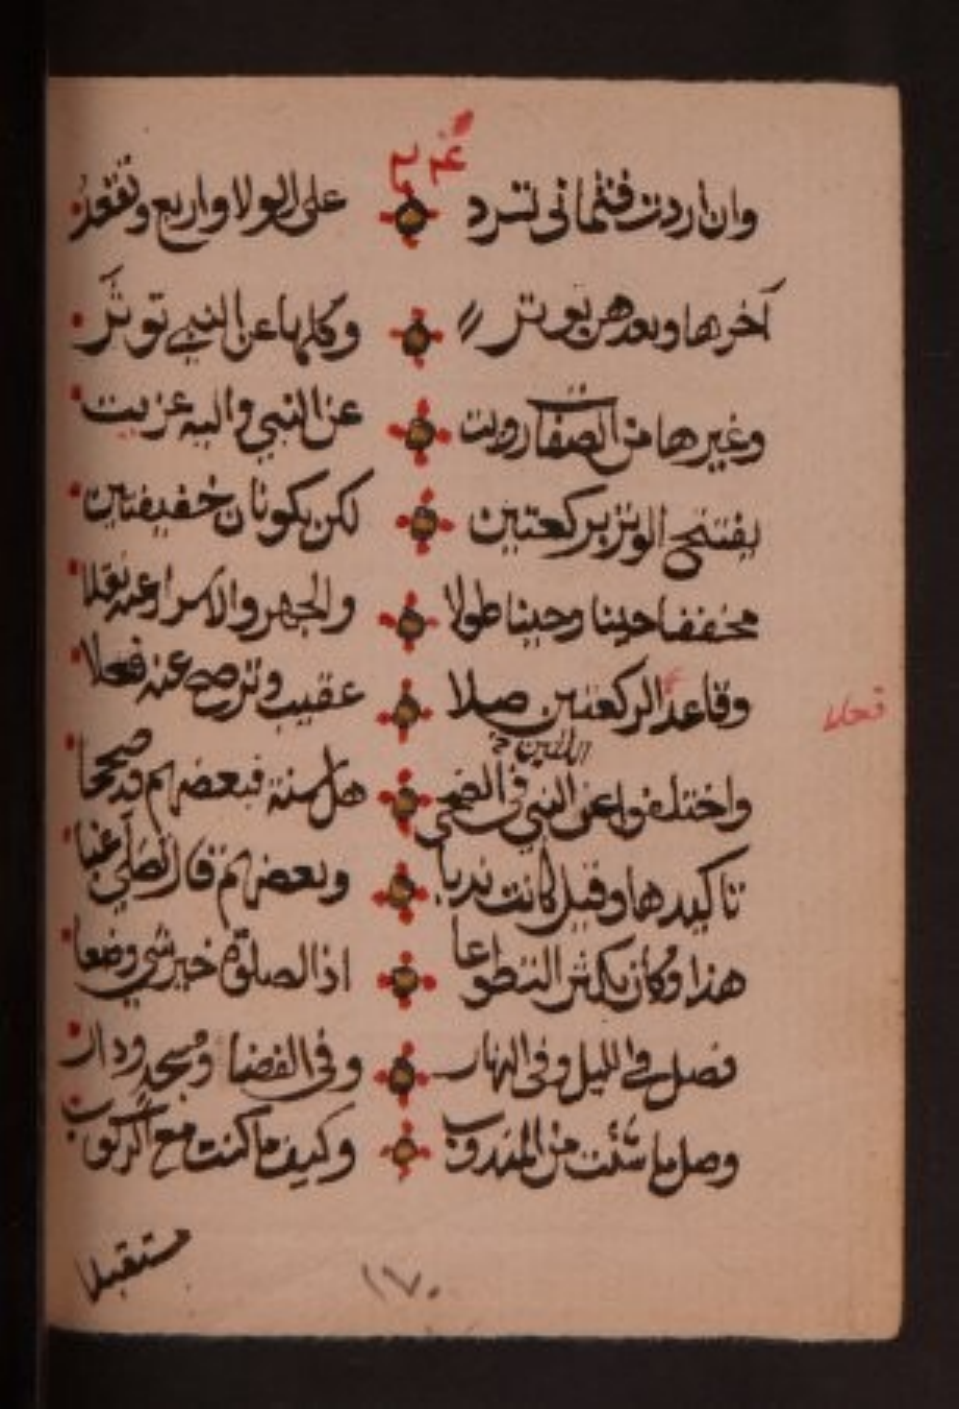 وان اردت فثماني تسرد على الولا واربع وتقعد
آخرها وبعدهن يوتر وكلها عن النبي تؤثر
وغيرها من الصفات رويت عن النبي واليه عزيت
يفتتح الوتر بركعتين لكن يكونان خفيفتين
مخففا حينا وحينا طولا والجهر والاسرار عنه نقلا
وقاعدا الركعتين صلا عقيب وتر صح عنه فعلا
فعلا
اللتين
واختلفوا عن النبي في الضحى هل سنة فبعضهم قد صححا
تاكيدها وقيل كانت ندبا وبعضهم قال تصلى غبا
هذا وكان يكثر التطوعا اذ الصلوة خير شي وضعا
فصل في الليل وفي النهار وفي الفضا ومسجد ودار
وصل ما شئت من المندوب وكيف ما كنت مع الركوب
مستقبلا
١٧٠